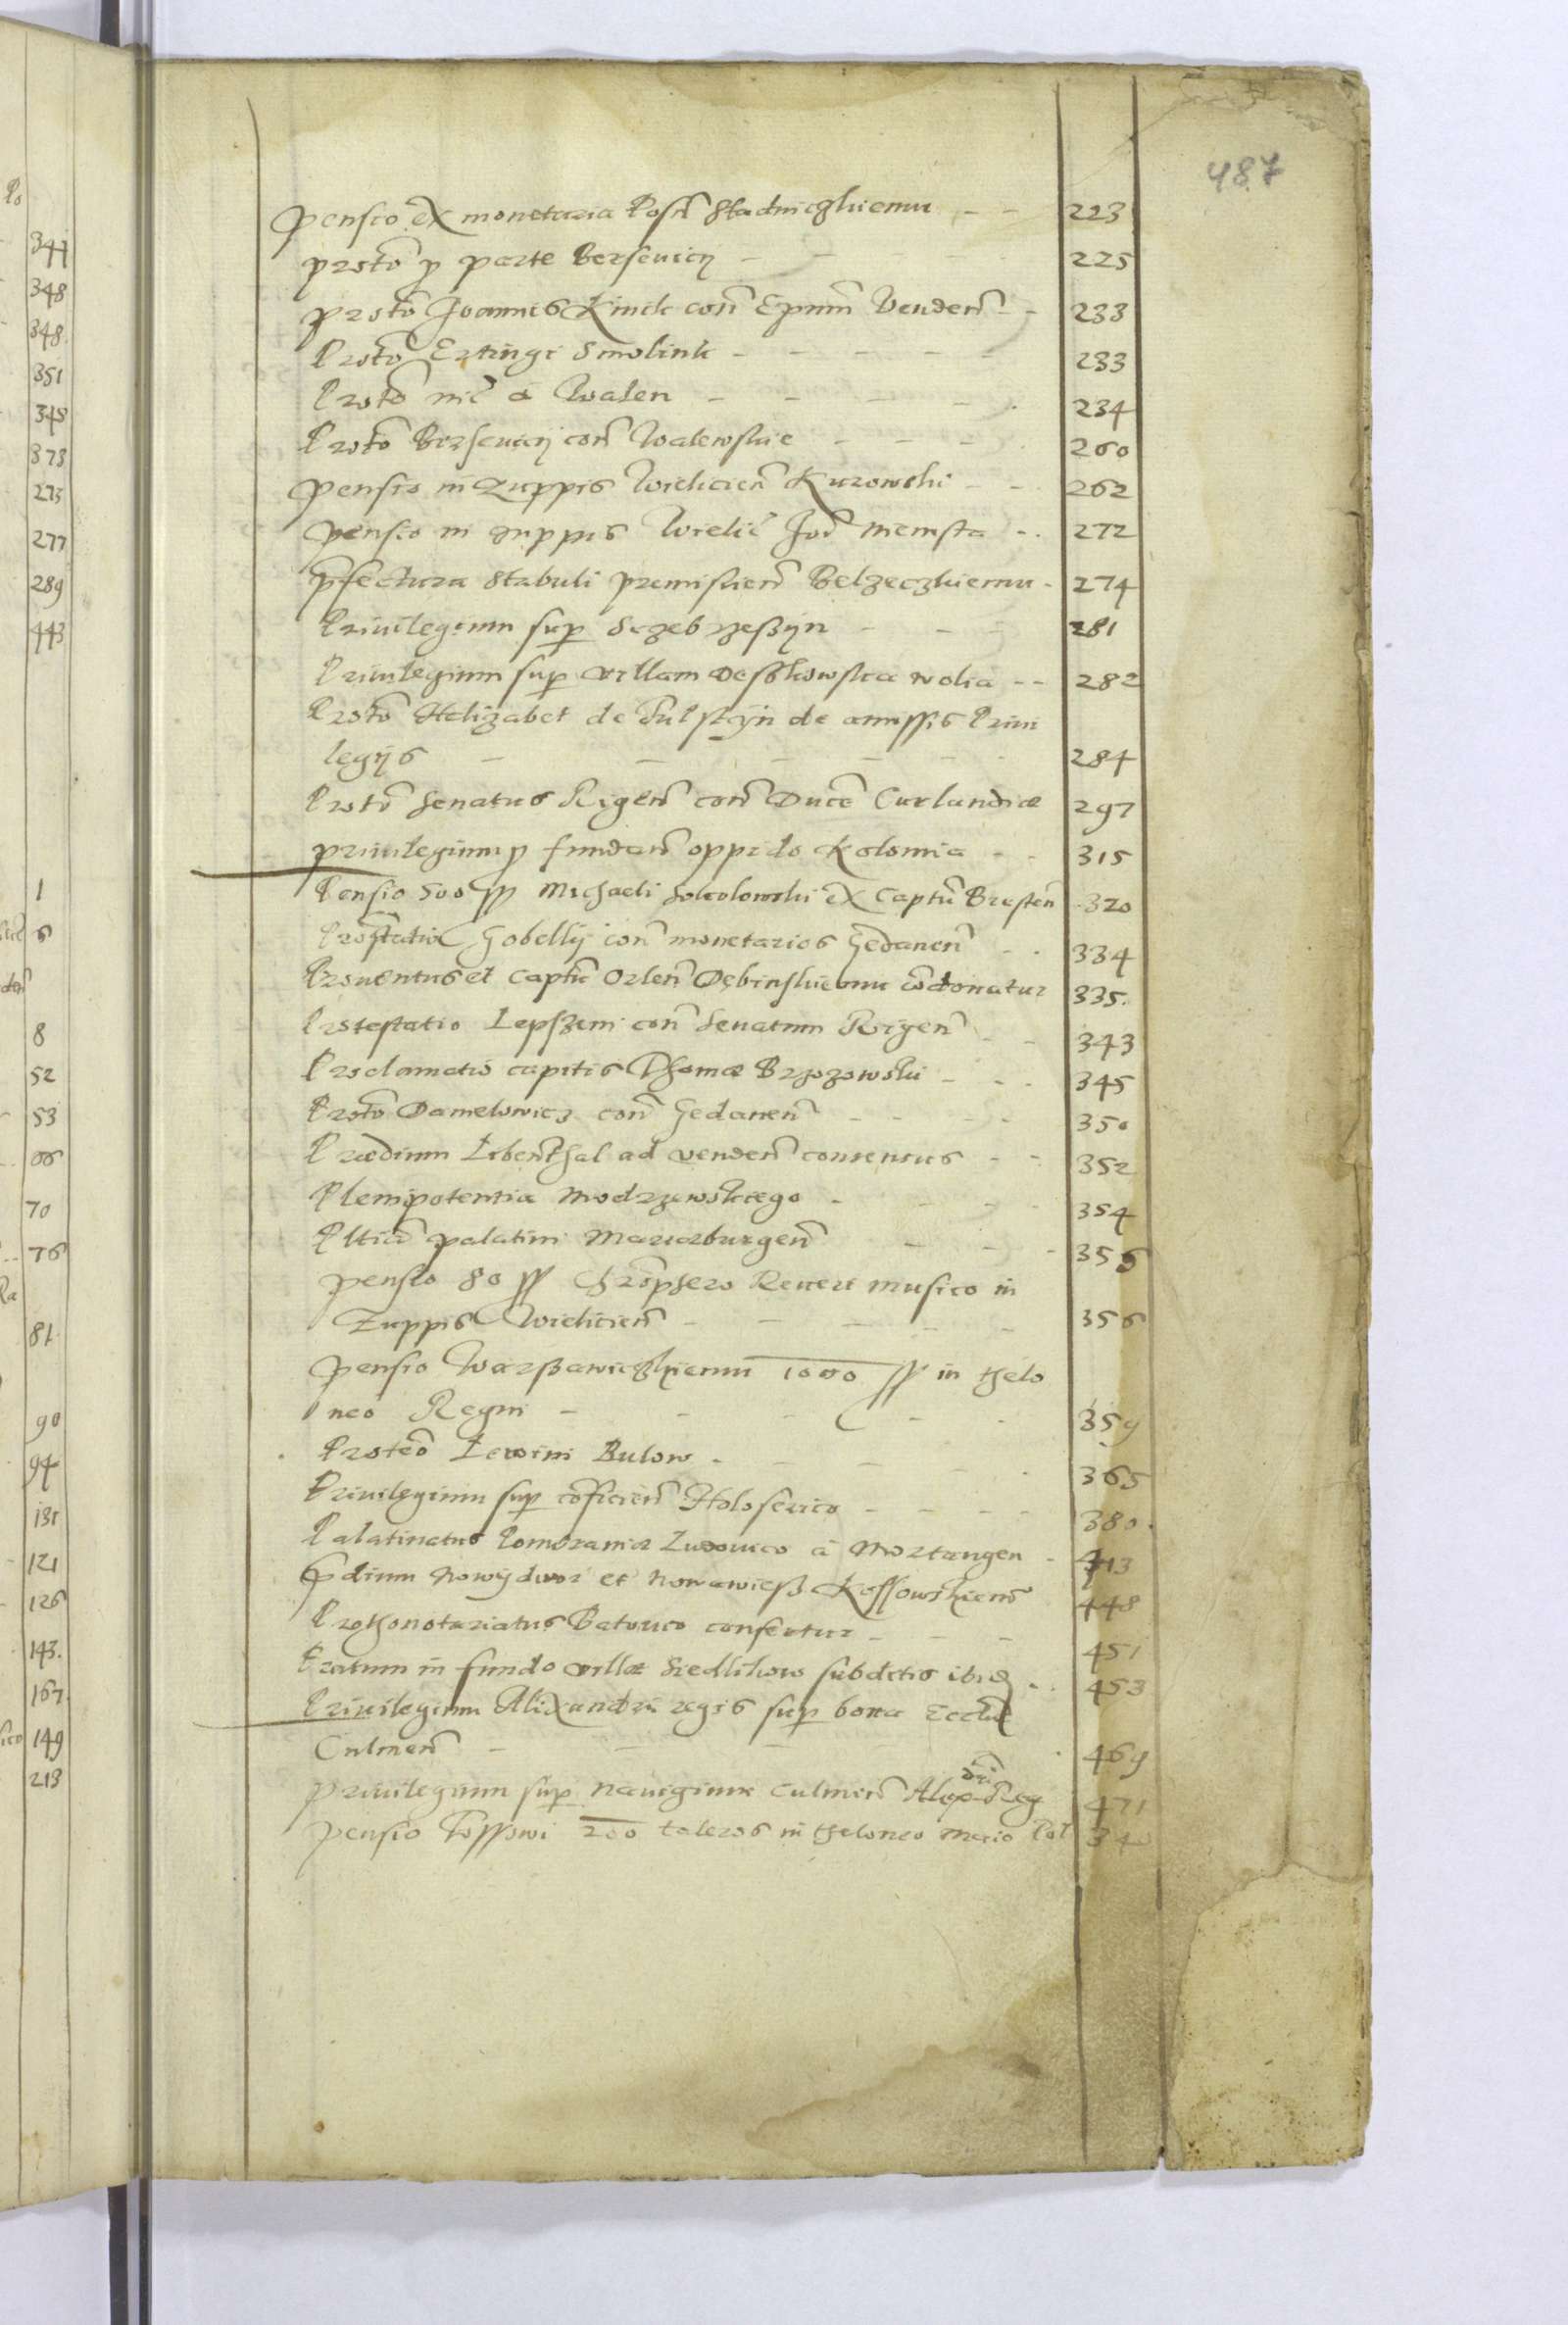 487
Pensio ex monetaria Posn Stadniczkiemu - - 223
Protō p parte Berseuicy - 225
Protō Joannis Kinck con Epum Venden - - 233
Protō Ertingi Smolink - - - - - 233
Protō nic a Walen - - - - . 234
Protō Berseuicy con Walewskie - - - . 260
Pensio in Zuppis Wieliciēn Kurowski - - 262
Pensio in zuppis Wielic Joā Memsta - . 272
Pfectura Stabuli premislien Belzeczkiemu - 274
Priuilegium sup Sczebrzessyn - - - 281
Priuilegium sup villam Deszkowska wolia - - 282
Protō Helizabet de Fulstyn de amissis Priui
legijs - - - - - . 284
Protō Senatus Rigēn con Ducē Curlandiæ 297
priuilegium p fundan oppido Kolomia - . 315
Pensio 500 ff Michaeli Sokolowski ex Captu Bresten - 320
Gobellij con monetarios Gedanen - . 334
Prouentus et Captu Orlen Dębinskiemu condonatur 335.
Protestatio Lepszeni con Senatum Rigen - - 343
Proclamatio capitis Thomæ Brzozowski - - . 345
Protō Danielowicz con Gedanen - - - . 350
Prædium Libenthal ad venden consensus - - 352
Plenipotentia Modrzewskiego - - - - 354
palatini Mariæburgen - - - 356
pensio 80 ff Reuert musico in
Zuppis Wieliciēn - - - - - 356
pensio Warssawiczkiemu 1000 ff in thelo
neo Regni - - - - . 359
Protēo Lewini Bulow - - - - . 365
Priuilegium sup conficiēn Holoserico - - - - 380.
Palatinatus Pomoraniæ Ludouico a Mortangen - 413
Pdium Nowydwor et Nowawiess Kossowskiemu 448
Prothonotariatus Batorico confertur - - - 451
Pratum in fundo villæ Siedlikow subditis ibid - . 453
Priuilegium Alexandri regis sup bona Ecclīæ
Culmen - - - . 469
priuilegium sup nauigium Culmen Reg 471
pensio 200 taleros in theloneo Maio Pol 340
Po
344
348
348.
351
348
373
273
277
289
443
1
6
8
52
53
66
70
76
81
90
94
131
121
126
143.
167.
149
213